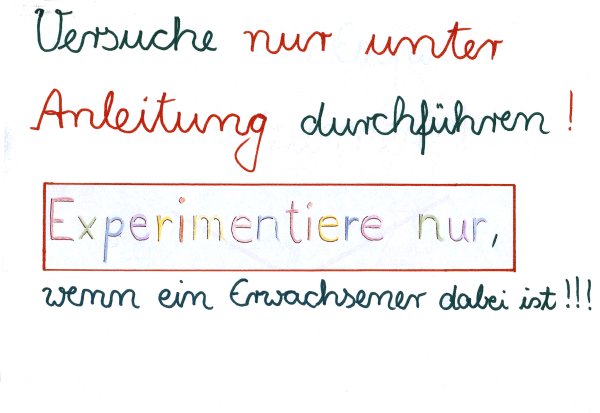 Versuche nur unter
Anleitung durchführen!
Experimentiere nur,
wenn ein Erwachsener dabei ist!!!